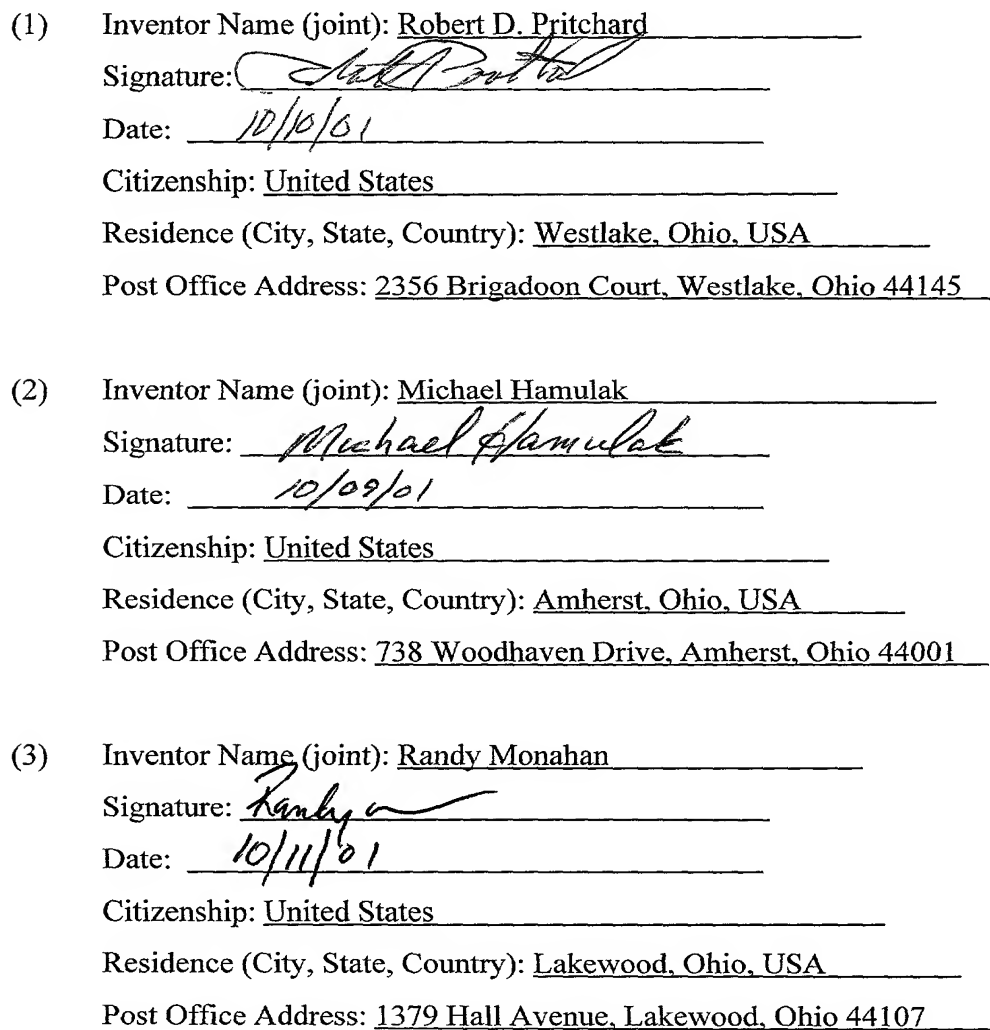 (1) Inventor Name (joint): Robert D. Pritchard
Signature:
Date: 10/10/01
Citizenship: United States
Residence (City, State, Country): Westlake, Ohio, USA
Post Office Address: 2356 Brigadoon Court, Westlake, Ohio 44145
(2) Inventor Name (joint): Michael Hamulak
Signature: Michael Hamulak
Date: 10/09/01
Citizenship: United States
Residence (City, State, Country): Amherst, Ohio, USA
Post Office Address: 738 Woodhaven Drive, Amherst, Ohio 44001
(3) Inventor Name (joint): Randy Monahan
Signature: Randy
Date: 10/11/01
Citizenship: United States
Residence (City, State, Country): Lakewood, Ohio, USA
Post Office Address: 1379 Hall Avenue, Lakewood, Ohio 44107